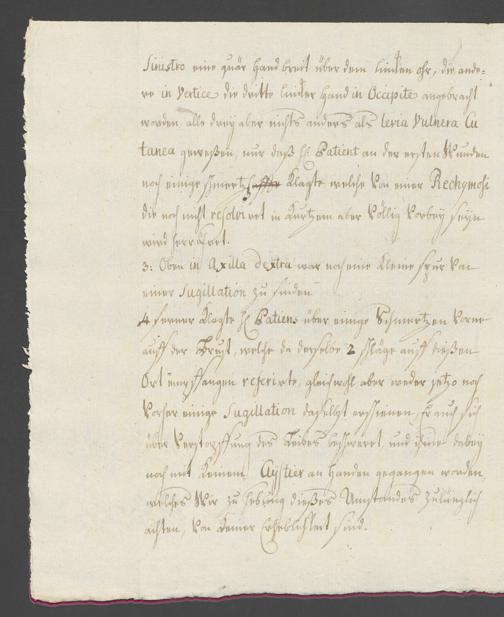 Sinistro eine quär Hand breit über dem lincken ohr, die ande-
re in Vertice die dritte lincker Hand in Occipite angebracht
worden, alle dreÿ aber nichts anders als levia Vulnera Cu
tanea geweßen, nur daß H. Patient an der ersten Wunden
noch einige schmertz klagte welche von einer Echymosi
die noch nicht resolviret in kurtzem aber völlig vorbeÿ seÿn
wird herrühret.
3: Oben in Axilla dextra war noch eine kleine spur von
einer Sugillation zu finden
4 ferner klagte H. Patiens über einige Schmertzen vorne
auff der Brust, welche da derselbe 2 schläge auff dießen
Ort empfangen referirte, gleichwohl aber weder jetzo noch
Vorher einige Sugillation daselbst erschienen, Er auch sich
über Verstopffung des Leibes beschweret, und ihme dabeÿ
noch mit keinem Clystier an Handen gegangen worden,
welches Wir zu hebung dießes Umstandes zulänglich
achten, von keiner Erheblichkeit sind.